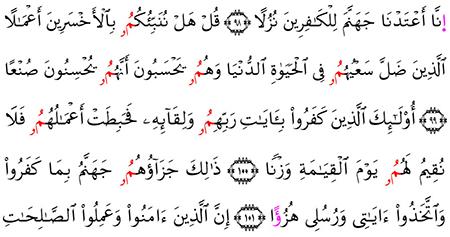 إِنَّا أَعْتَدْنَا جَهَنَّمَ لِلْكَافِرِينَ نُزُلًا ٩٨ قُلْ هَلْ نُنَبِّئُكُمُۥ بِالْأَخْسَرِينَ أَعْمَٰلًا
الَّذِينَ ضَلَّ سَعْيُهُمُۥ فِي الْحَيَوٰةِ الدُّنْيَا وَهُمُۥ يَحْسِبُونَ أَنَّهُمُۥ يُحْسِنُونَ صُنْعًا
٩٩ أُوْلَٰئِكَ الَّذِينَ كَفَرُوا بِـَٔايَٰتِ رَبِّهِمُۥ وَلِقَآئِهِۦ فَحَبِطَتْ أَعْمَٰلُهُمُۥ فَلَا
نُقِيمُ لَهُمُۥ يَوْمَ الْقِيَٰمَةِ وَزْنًا ١٠٠ ذَٰلِكَ جَزَآؤُهُمُۥ جَهَنَّمُ بِمَا كَفَرُوا
وَاتَّخَذُوا ءَايَٰتِي وَرُسُلِي هُزُؤًا ١٠١ إِنَّ الَّذِينَ ءَامَنُوا وَعَمِلُوا الصَّٰلِحَٰتِ